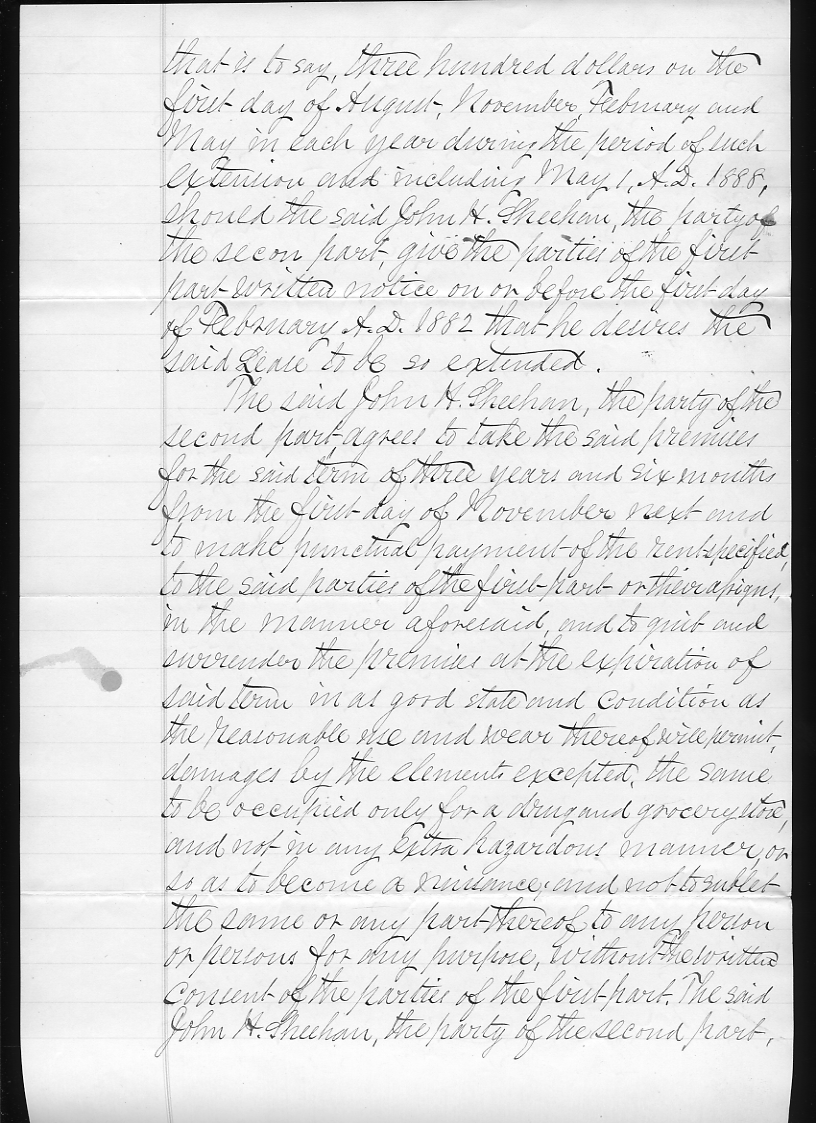 that is to say, three hundred dollars on the
first day of August, November, February and
May in each year during the period of such
extension and including May 1, A.D. 1888,
should the said John H. Sheehan, the party of
the secon part, give the parties of the first
part written notice on or before the first day
of February A.D. 1882 that he desires the
said Lease to be so extended.
The said John H. Sheehan, the party of the
second part, agrees to take the said premises
for the said term of three years and six months
from the first day of November next and
to make punctual payment of the rent specified,
to the said parties of the first part or their assigns,
in the manner aforesaid, and to quit and
surrender the premises at the expiration of
said term in as good state and condition as
the reasonable use and wear thereof will permit,
damages by the elements excepted, the same
to be occupied only for a drug and grocery store,
and not in any extra hazardous manner, or
so as to become a nuisance, and not to sublet
the same or any part thereof to any person
or persons for any purpose, without the written
consent of the parties of the first part. The said
John H. Sheehan, the party of the second part,